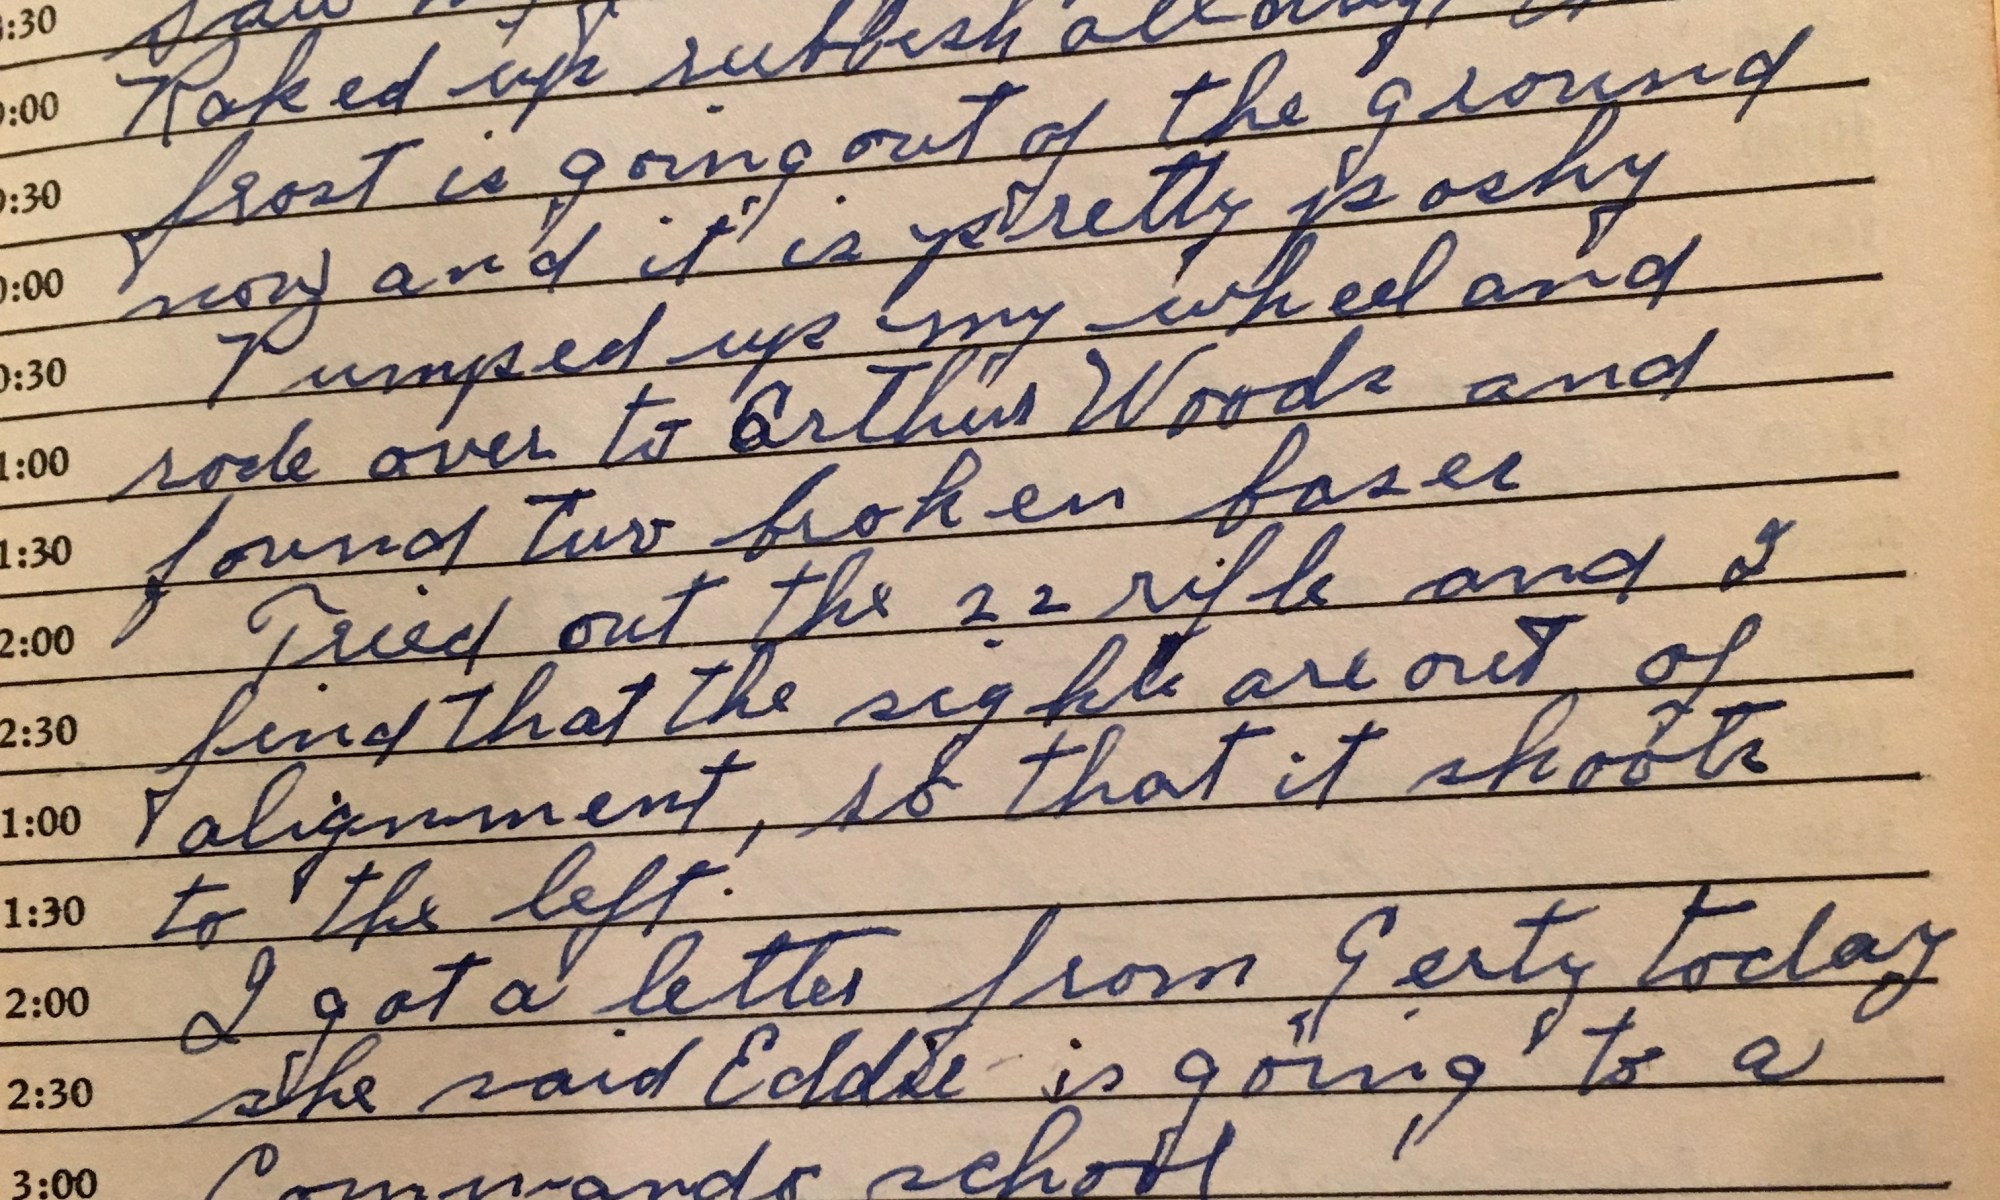 saw
8:30
Raked up rubbish all day.
9:00
frost is going out of the ground
9:30
now and it is pretty poshy
0:00
Pumped up my wheel and
0:30
rode over to Arthur Woods and
1:00
found two broken
1:30
Tried out the 22 rifle and I
2:00
find that the sights are out of
2:30
alignment, so that it shoots
1:00
to the left.
1:30
I got a letter from Gerty today
2:00
she said Eddie is going to a
2:30
Commando school
3:00